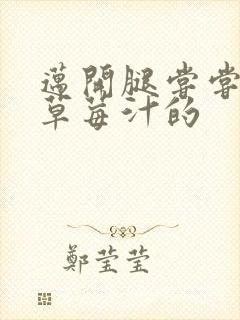 邁開腿嘗嘗
草莓汁的
鄭莹莹